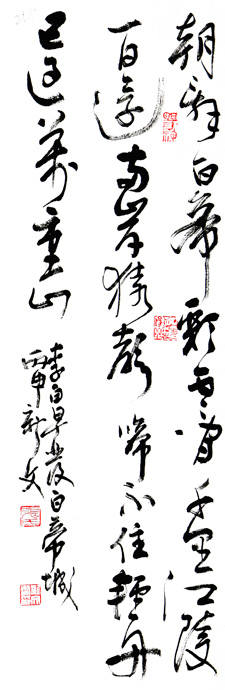 朝辞白帝彩雲間千里江陵
一日還兩岸猿聲啼不住輕舟
已過萬重山
李白早發白帝城
丙申新文